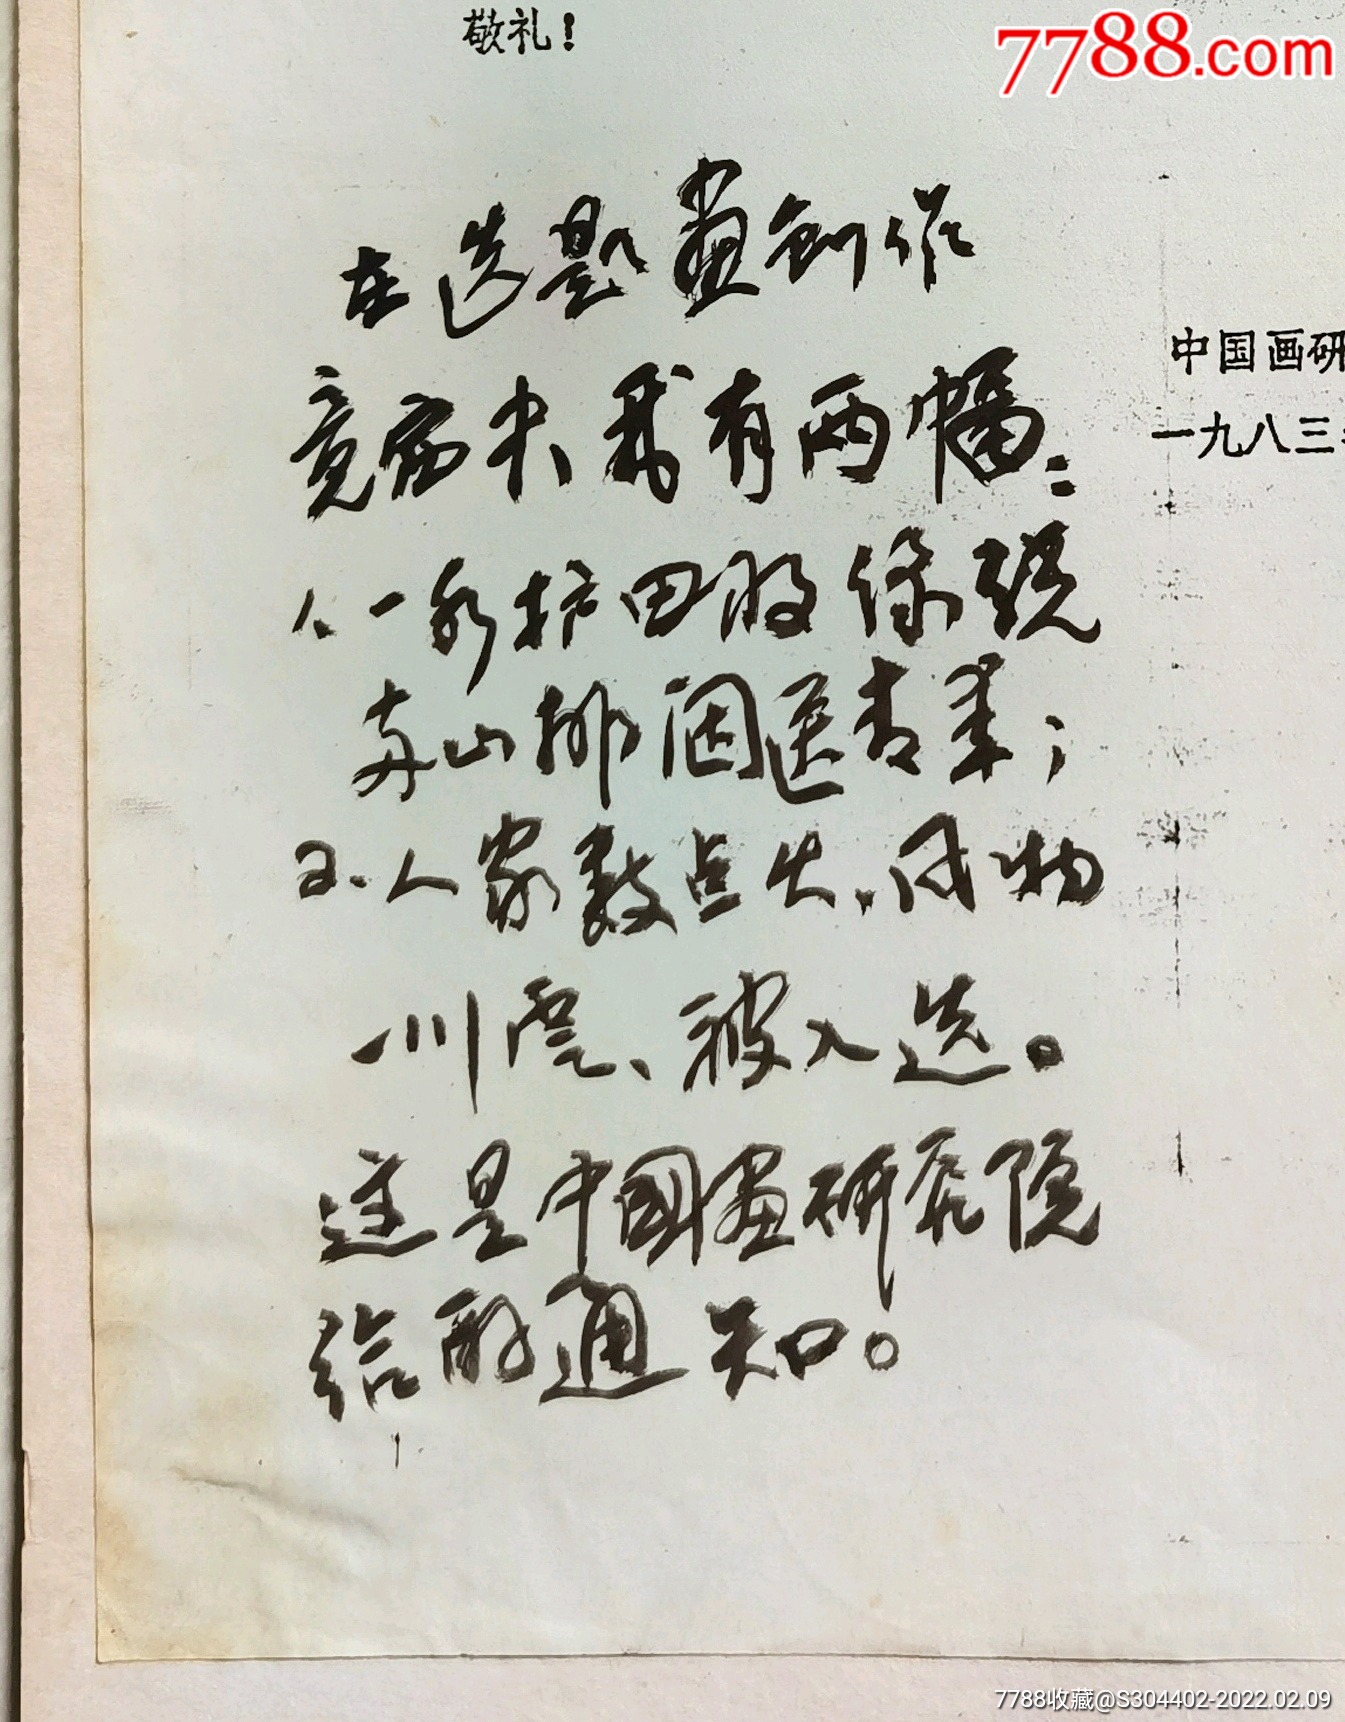 敬礼!
7788.com
在选题畫創作
竟賽中我有两幅:
中国画研
一九八三
1.一水护田将绿绕
两山排闼送青来;
2.人家数点出,风物
一川宽、被入选。
这是中國畫研究院
给的通知。
7788收藏@S304402-2022.02.09